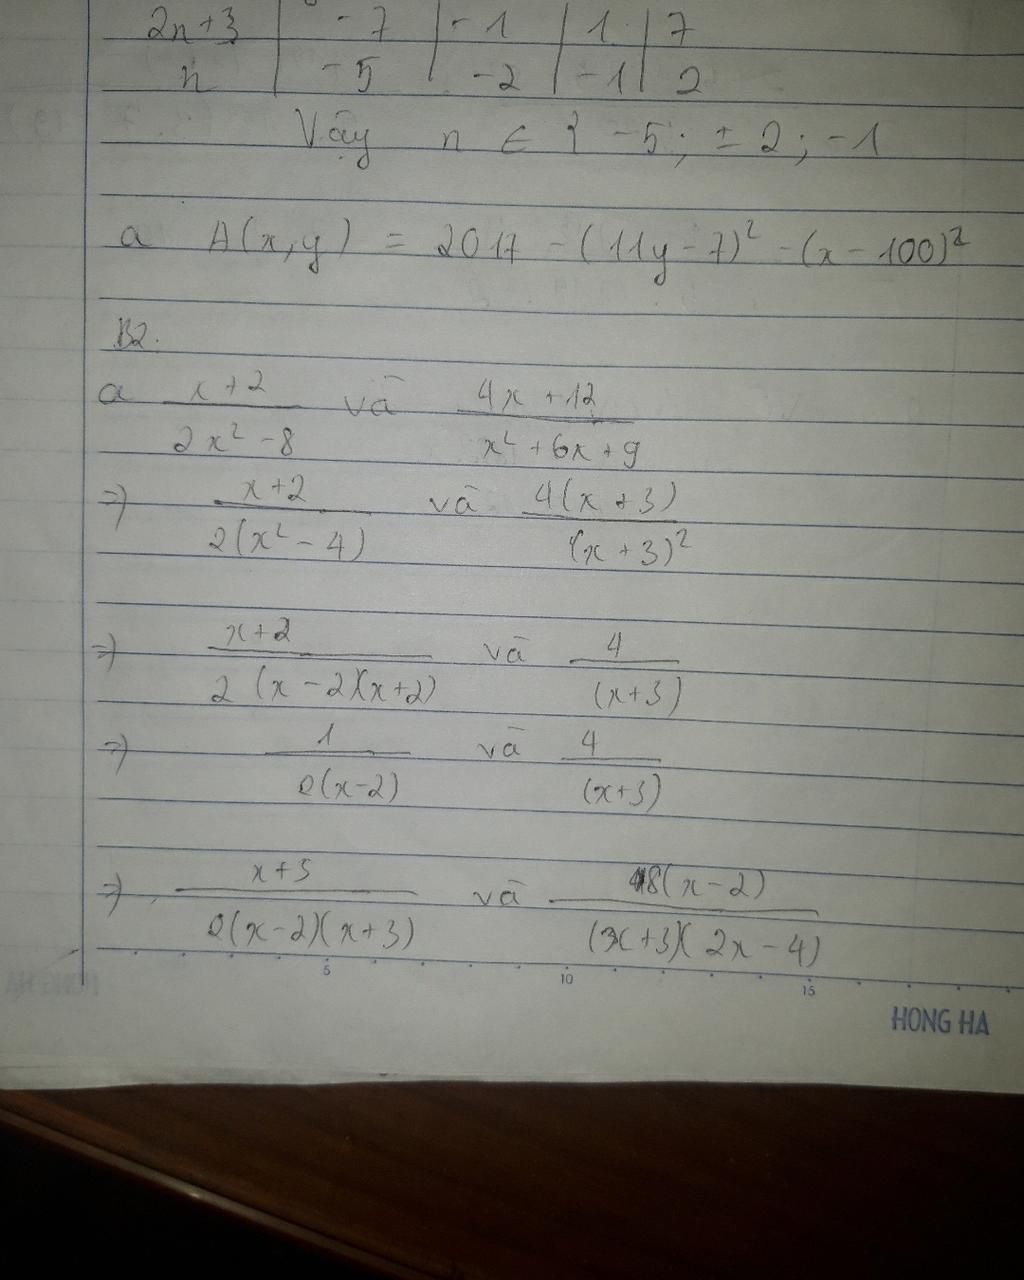 2n+3 | -7 | -1 | 1 | 7
n | -5 | -2 | -1 | 2
Vậy n ∈ { -5; ± 2; -1
a A(x,y) = 2017 - (11y - 7)² - (x - 100)²
B2.
a (x+2)/(2x² - 8) và (4x + 12)/(x² + 6x + 9)
=> (x+2)/(2(x² - 4)) và 4(x + 3)/(x + 3)²
=> (x+2)/(2(x - 2)(x+2)) và 4/(x+3)
=> 1/(2(x-2)) và 4/(x+3)
=> (x+3)/(2(x-2)(x+3)) và 8(x-2)/((x+3)(2x-4))
5 10 15
HONG HA